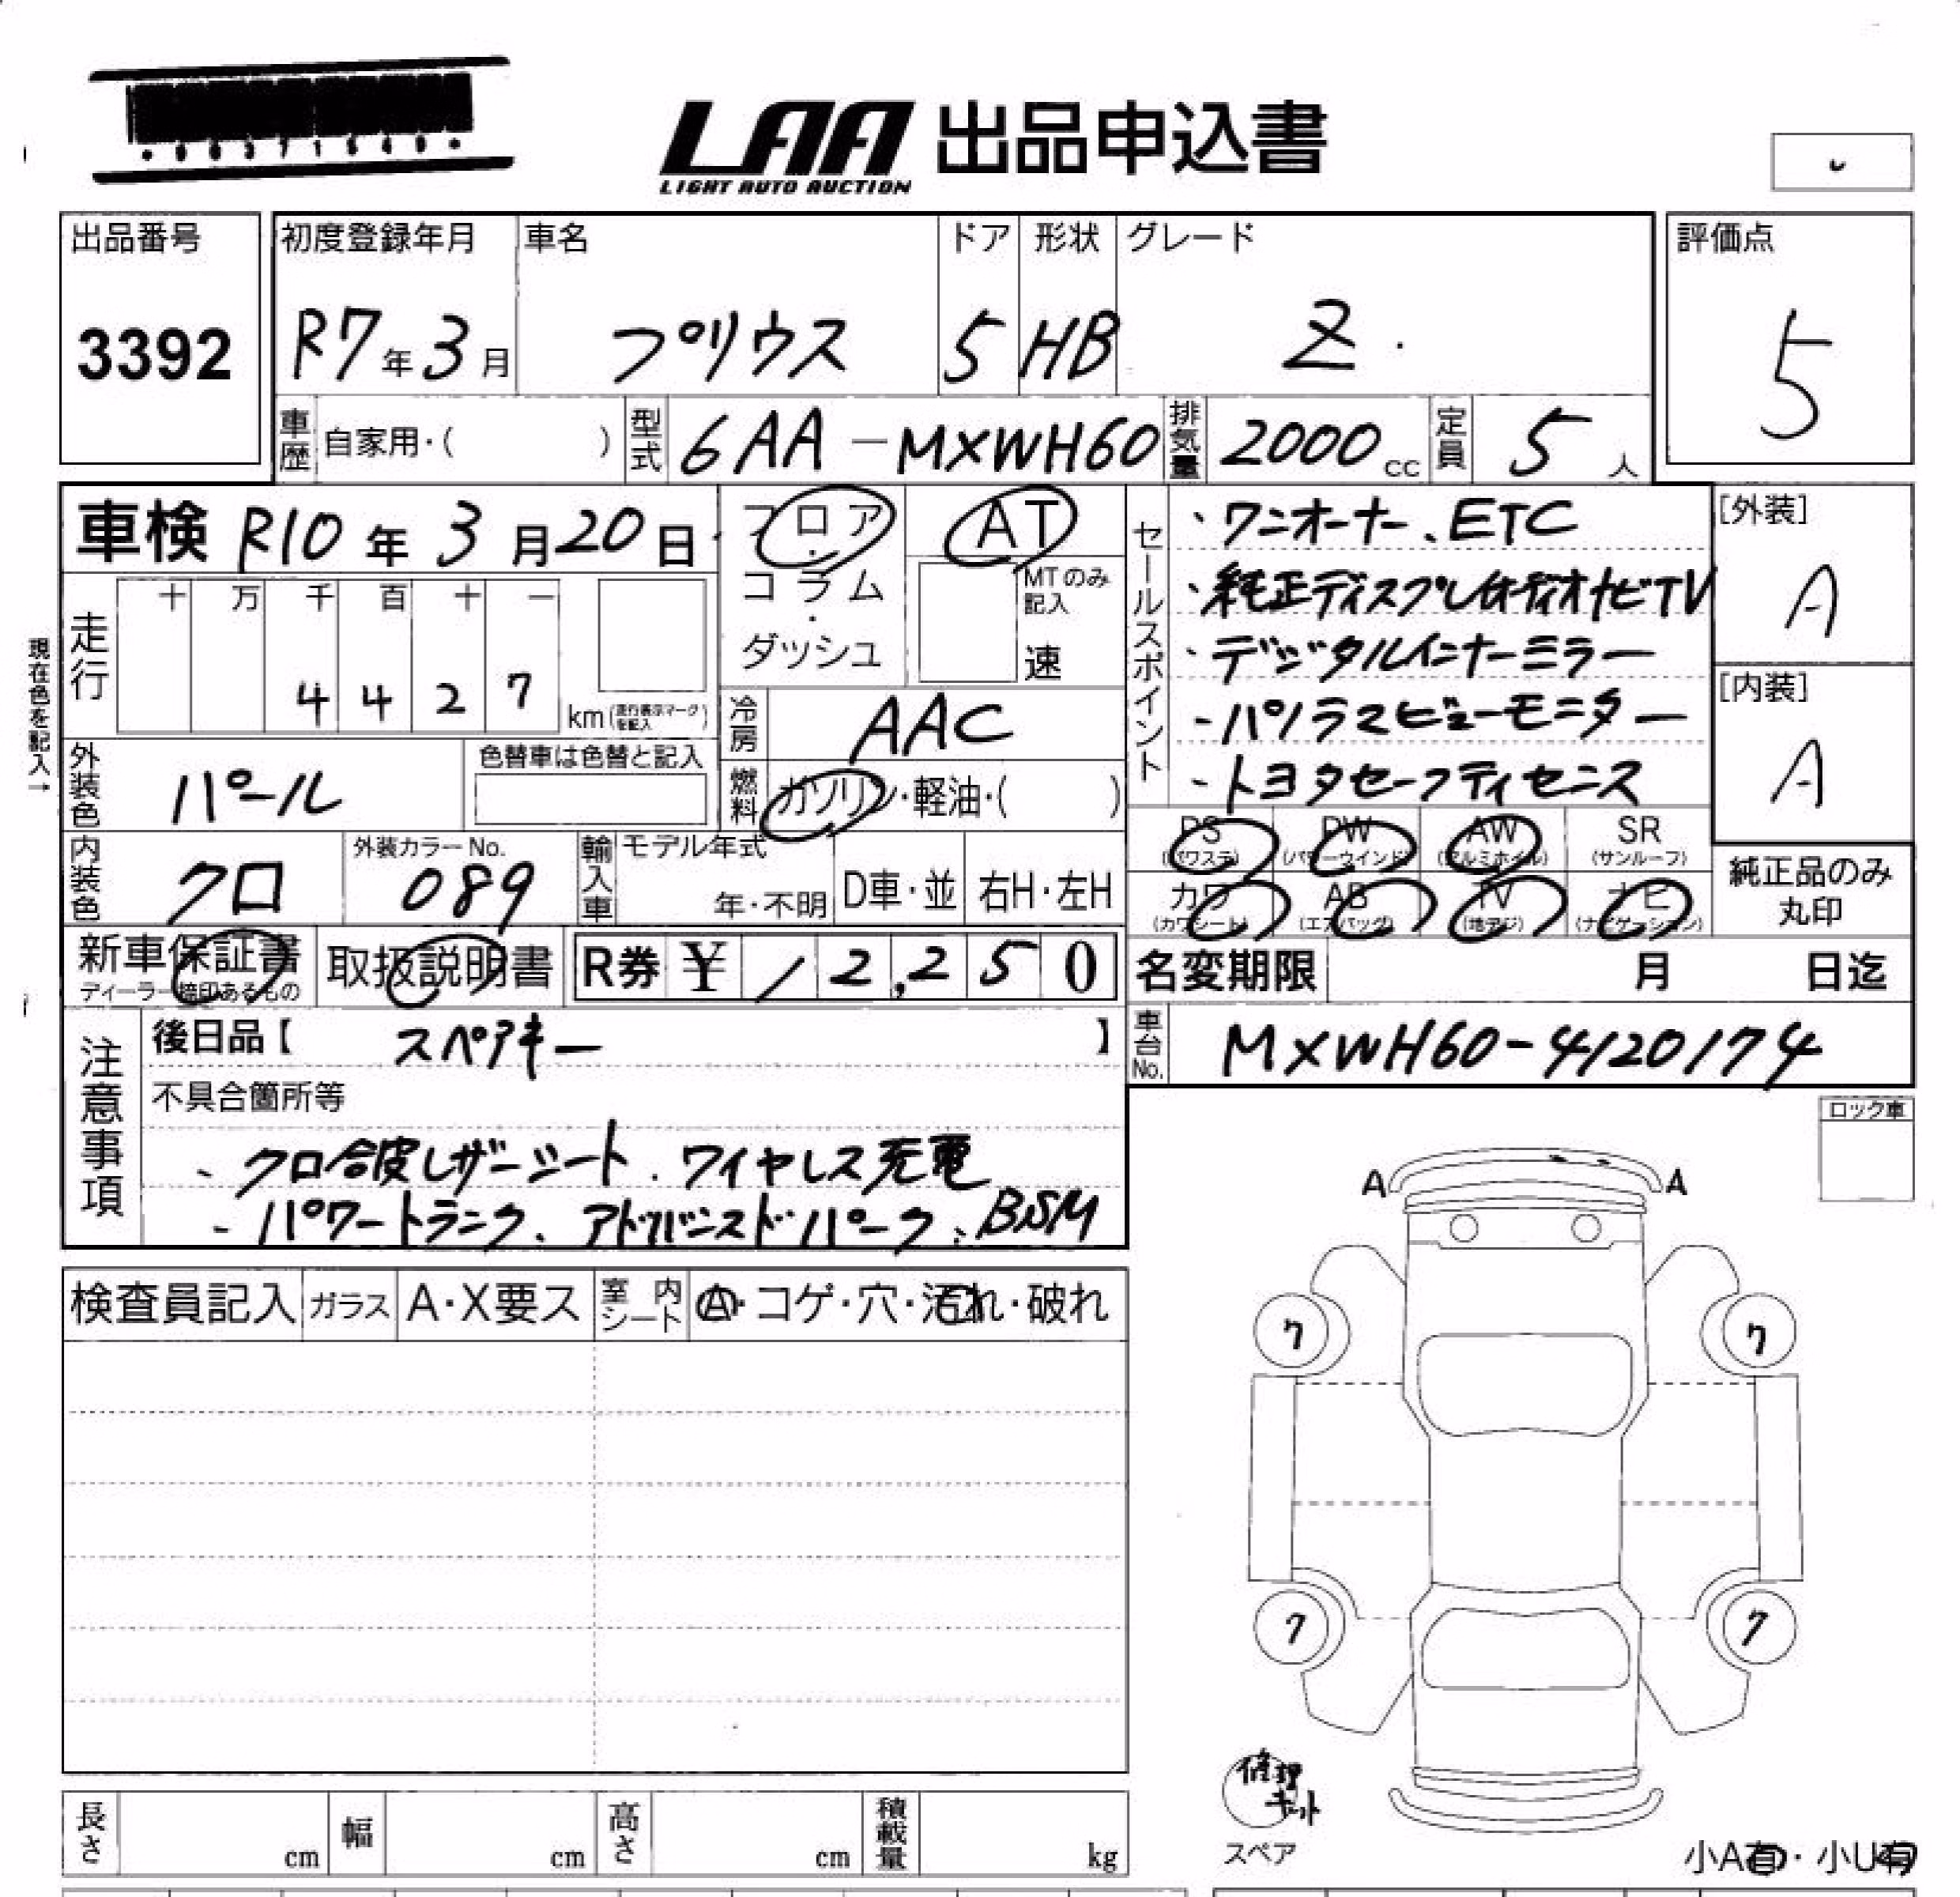 LAA 出品申込書
LIGHT AUTO AUCTION
出品番号
3392
初度登録年月
R7年3月
車名
プリウス
ドア
5
形状
HB
グレード
Z
評価点
5
車歴 自家用・( )
型式 6AA-MXWH60
排気量 2000cc
定員 5人
車検 R10年3月20日
フロア・コラム・ダッシュ
AT
MTのみ記入
速
セールスポイント
・ワンオーナー、ETC
・純正ディスプレイオーディオナビTV
・デジタルインナーミラー
・パノラマビューモニター
・トヨタセーフティセンス
[外装]
A
[内装]
A
現在色を記入→
走行
十 万 千 百 十 一
4 4 2 7
km(走行表示マークを記入)
冷房 AAC
燃料 ガソリン・軽油・( )
外装色 パール
色替車は色替と記入
内装色 クロ
外装カラーNo.
089
輸入車
モデル年式
年・不明
D車・並
右H・左H
PS (パワステ)
PW (パワーウインド)
AW (アルミホイル)
SR (サンルーフ)
カワ (カワシート)
AB (エアバッグ)
TV (地デジ)
ナビ (ナビゲーション)
純正品のみ
丸印
新車保証書
ディーラー捺印あるもの
取扱説明書
R券 ¥ 12,250
名変期限 月 日迄
車台No. MXWH60-4120174
注意事項
後日品【 スペアキー 】
不具合箇所等
、クロ合皮レザーシート、ワイヤレス充電
-パワートランク、アドバンスドパーク、BSM
ロック車
A A
検査員記入
ガラス A・X要ス
室内シート A・コゲ・穴・汚れ・破れ
ク ク
ク ク
修理
キット
スペア
小A有・小U有
長さ cm
幅 cm
高さ cm
積載量 kg